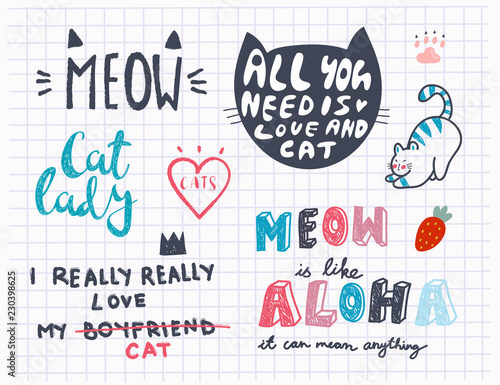 MEOW
ALL YOU
NEED IS
LOVE AND
CAT
Cat
lady
CATS
I REALLY REALLY
LOVE
MY BOYFRIEND
CAT
MEOW
is like
ALOHA
it can mean anything
Adobe Stock | #230398625